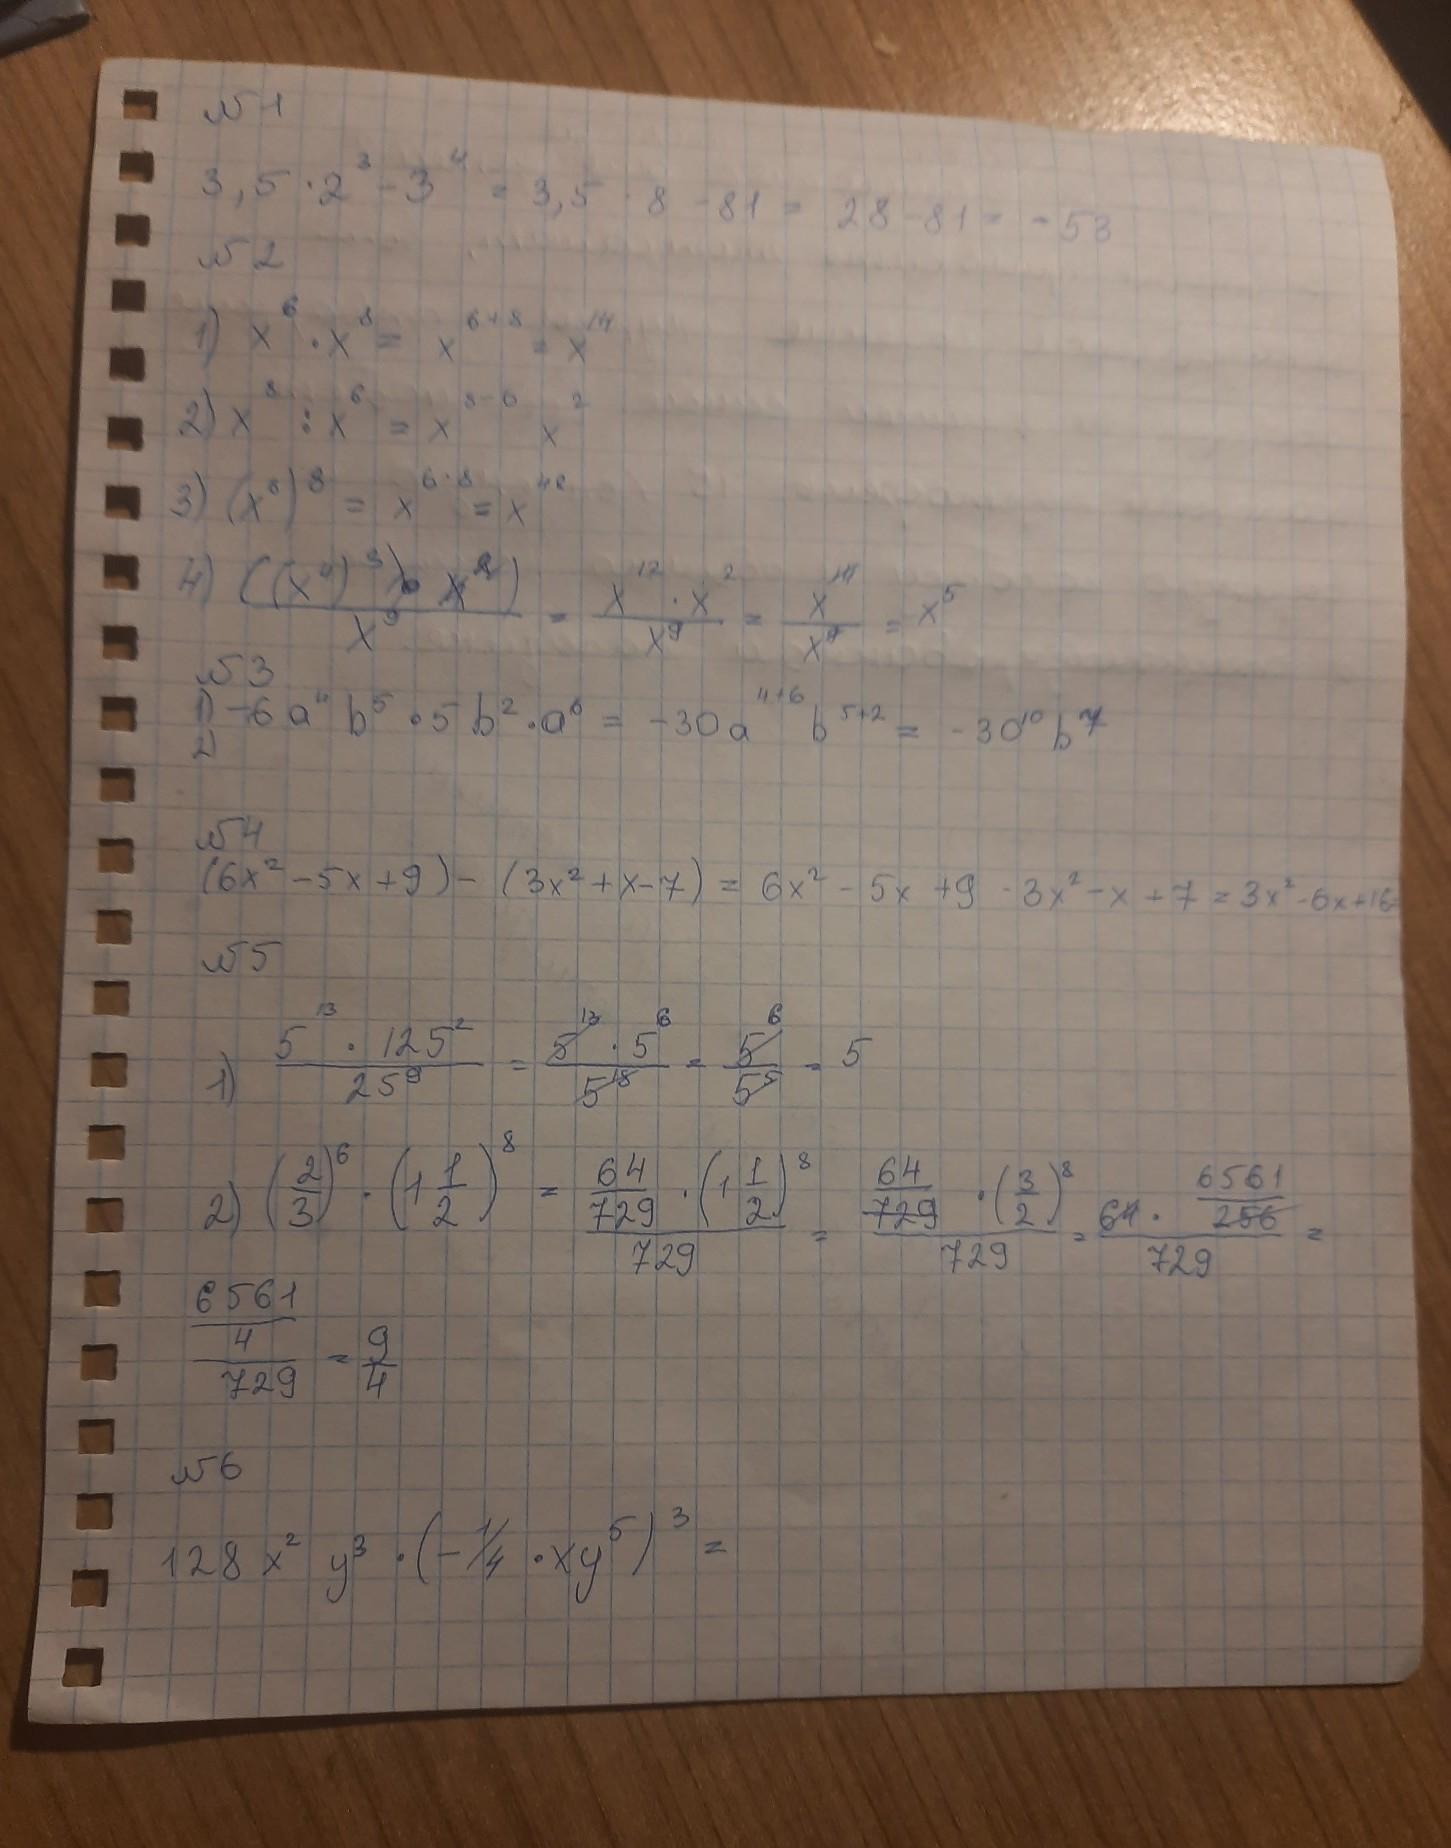 №1
3,5 · 2³ - 3⁴ = 3,5 · 8 - 81 = 28 - 81 = -53
№2
1) x⁶ · x⁸ = x⁶⁺⁸ = x¹⁴
2) x⁸ : x⁶ = x⁸⁻⁶ x²
3) (x⁶)⁸ = x^(6·8) = x⁴⁸
4) ((x⁴)³) · x²) / x⁹ = x¹² · x² / x⁹ = x¹⁴ / x⁹ = x⁵
№3
1) -6a⁴ b⁵ · 5b² · a⁶ = -30a⁴⁺⁶ b⁵⁺² = -30¹⁰ b⁷
2)
№4
(6x² - 5x + 9) - (3x² + x - 7) = 6x² - 5x + 9 - 3x² - x + 7 = 3x² - 6x + 16
№5
1) 5¹³ · 125² / 25⁹ = 5¹³ · 5⁶ / 5¹⁸ = 5⁶ / 5⁵ = 5
2) (2/3)⁶ · (1 1/2)⁸ = 64/729 · (1 1/2)⁸ / 729 = 64/729 · (3/2)⁸ / 729 = 64 · 6561/256 / 729 =
6561/4 / 729 = 9/4
№6
128 x² y³ · (- 1/4 · xy⁵)³ =